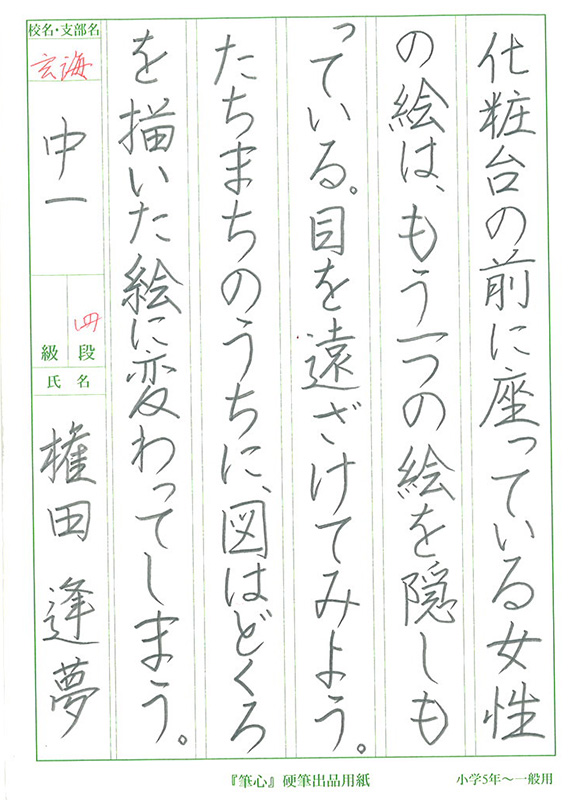 化粧台の前に座っている女性
の絵は、もう一つの絵を隠しも
っている。目を遠ざけてみよう。
たちまちのうちに、図はどくろ
を描いた絵に変わってしまう。
校名・支部名
玄海
中一
四
級 段
氏 名
権田 逢夢
『筆心』硬筆出品用紙
小学5年〜一般用